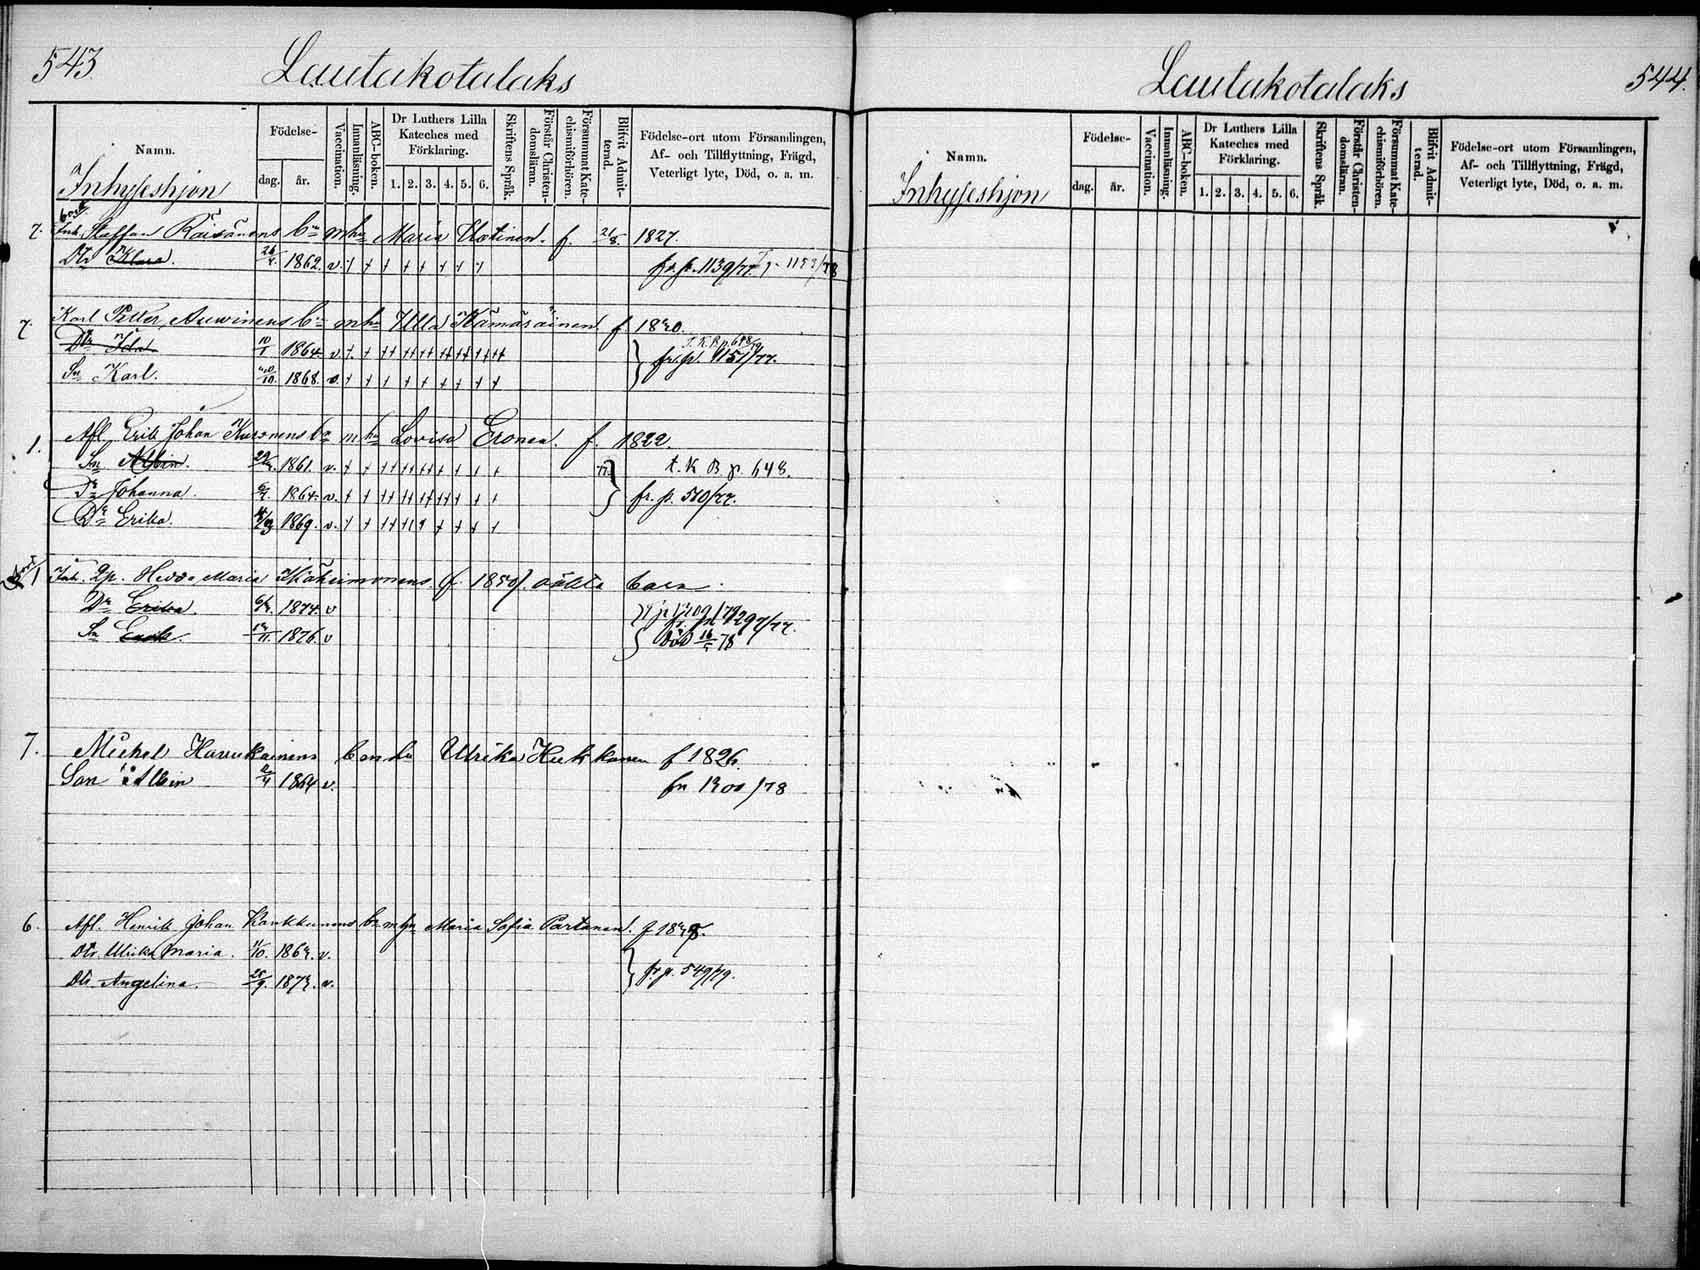 543
Lautakotalaks
Namn.
Födelse-
dag. år.
Vaccination.
Innanläsning.
ABC-boken.
Dr Luthers Lilla Kateches med Förklaring.
1. 2. 3. 4. 5. 6.
Skriftens Språk.
Förstår Christendomsläran.
Försummat Katechismiförhören.
Blifvit Admitterad.
Födelse-ort utom Församlingen, Af- och Tillflyttning, Frägd, Veterligt lyte, Död, o. a. m.
Inhyseshjon
7. Inh. Staffan Räisänens bn m hu Maria f. 21/8. 1827.
Dtr Klara. 26/4. 1862. v. fr. p. 1139/77.
7. Karl Petter Auvinens bn m hu Ulla Hämäräinen f 1840.
Dtr Ida 10/5 1864. v. fr. p. 1151/77.
Sn Karl. 1868. v.
1. Afl. Erik Johan Kuronens bn m hu Lovisa Eronen. f. 1822.
Sn Albin. 1861. v. t. K B p. 648.
Dr Johanna. 1864. v. fr. p. 510/77.
Dr Erika. 1869. v.
1 Inh. Qp. Hedda Maria f. 1850). oäkta barn.
Dr Erika. 1874. v
Sn Erik. 1876. v död 78
7. Michel Haverkainens b m hu Ulrika Hukkanen f 1826.
Son Albin 1864 v. fr 1300/78
6. Afl. Henrik Johan Kankkunens bn m hu Maria Sofia Partanen. f 1848.
Dtr. Ulrika Maria. 11/10. 1867. v.
Dtr. Angelina. 25/9. 1873. v. fr. p. 549/79.
Lautakotalaks
544.
Namn.
Födelse-
dag. år.
Vaccination.
Innanläsning.
ABC-boken.
Dr Luthers Lilla Kateches med Förklaring.
1. 2. 3. 4. 5. 6.
Skriftens Språk.
Förstår Christendomsläran.
Försummat Katechismiförhören.
Blifvit Admitterad.
Födelse-ort utom Församlingen, Af- och Tillflyttning, Frägd, Veterligt lyte, Död, o. a. m.
Inhyseshjon